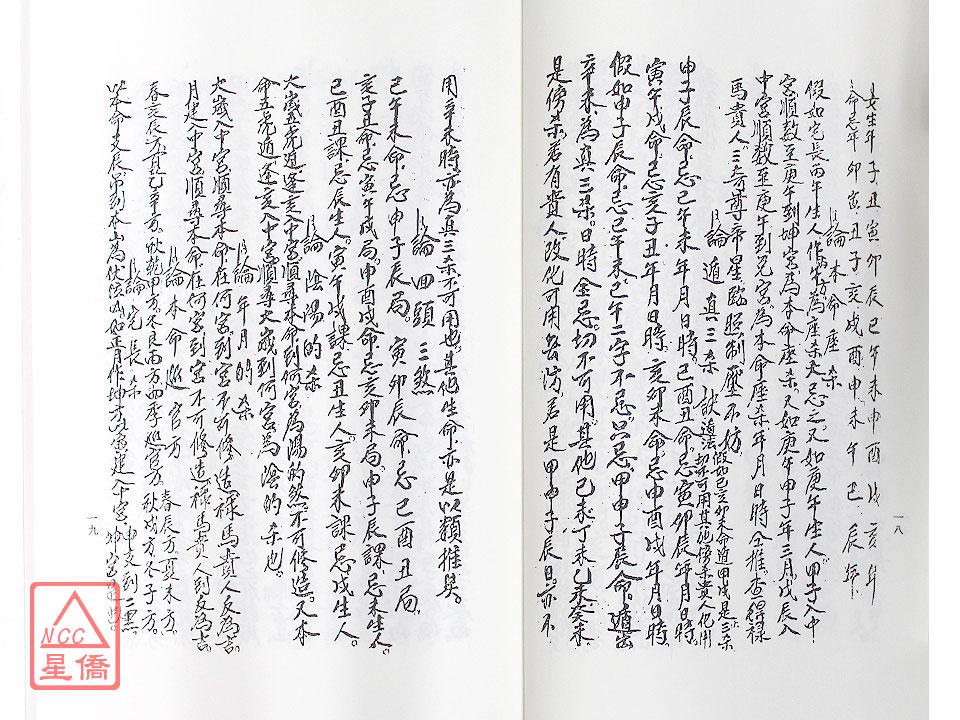 女生年子丑寅卯辰巳午未申酉戌亥年
命忌年卯寅丑子亥戌酉申未午巳辰年
論本命座杀
假如宅長丙午生人作生為座杀大忌之又如庚午生人甲子入中
宮順數至庚午到坤宮為本命座杀又如庚午甲子年三月戊辰入
中宮順數至庚午到兌宮為本命座杀年月日時仝推查得祿
馬貴人三奇尊帝星臨照制壓不妨
論遁真三杀訣
申子辰命忌巳午未年月日時巳酉丑命忌寅卯辰年月日時
寅午戌命忌亥子丑年月日時亥卯未命忌申酉戌年月日時
假如申子辰命忌巳午未巳午二字不忌只忌甲申子辰命遁出
辛未為真三杀日時全忌切不可用其他己未丁未乙未癸未
是傍杀若有貴人改化可用無妨若是甲申子辰日亦不
一八
用辛未時亦為真三杀不可用也其他生命亦是以類推矣
論回頭三煞
巳午未命忌申子辰局寅卯辰命忌巳酉丑局
亥子丑命忌寅午戌局申酉戌命忌亥卯未局申子辰課忌未生人
巳酉丑課忌辰生人寅午戌課忌丑生人亥卯未課忌戌生人
論陰陽的杀
太歲五虎遁逢亥入中宮順尋本命到何宮為陽的煞不可修造又本
命五虎遁逢亥入中宮順尋太歲到何宮為陰的杀也
論年月的杀
太歲入中宮順尋本命在何宮到宮不可修造祿馬貴人反為吉
月建入中宮順尋本命在何宮到宮不可修造祿馬貴人到反為吉
論本命巡官方
論宅長杀
一九
NCC
星僑